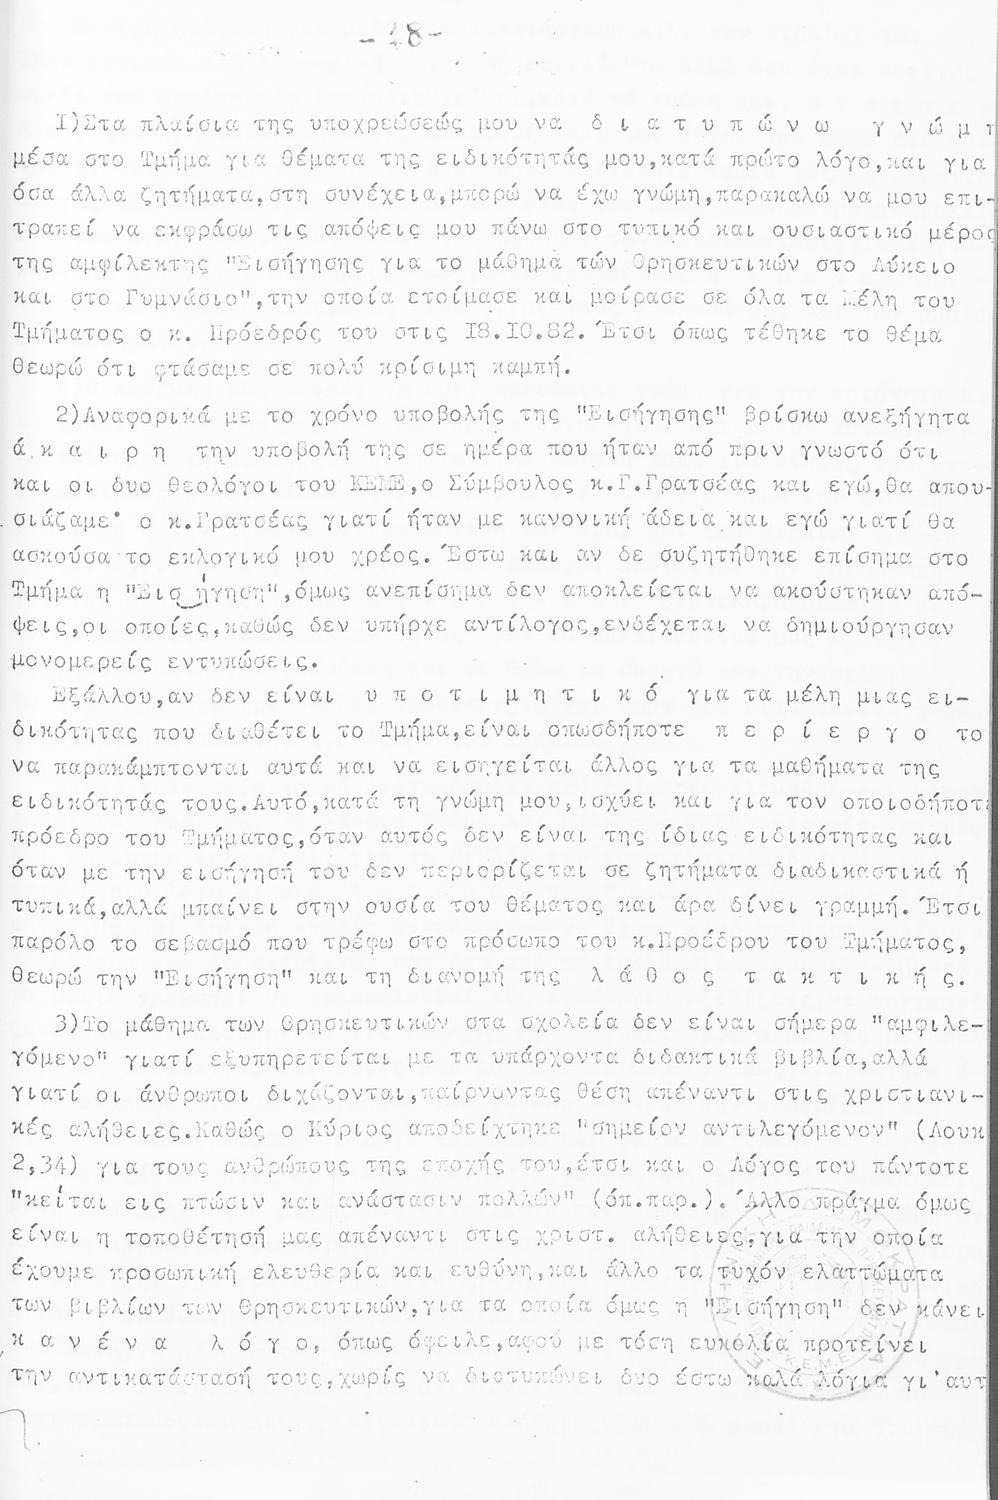 -18-
I)Στα πλαίσια της υποχρεώσεώς μου να δ ι α τ υ π ώ ν ω γ ν ώ μ η
μέσα στο Τμήμα για θέματα της ειδικότητάς μου,κατά πρώτο λόγο,και για
όσα άλλα ζητήματα,στη συνέχεια,μπορώ να έχω γνώμη,παρακαλώ να μου επι-
τραπεί να εκφράσω τις απόψεις μου πάνω στο τυπικό και ουσιαστικό μέρος
της αμφίλεκτης "Εισήγησης για το μάθημα τών Θρησκευτικών στο Λύκειο
και στο Γυμνάσιο",την οποία ετοίμασε και μοίρασε σε όλα τα Μέλη του
Τμήματος ο κ. Πρόεδρός του στις I8.IO.82. Έτσι όπως τέθηκε το θέμα
θεωρώ ότι φτάσαμε σε πολύ κρίσιμη καμπή.
2)Αναφορικά με το χρόνο υποβολής της "Εισήγησης" βρίσκω ανεξήγητα
ά κ α ι ρ η την υποβολή της σε ημέρα που ήταν από πριν γνωστό ότι
και οι δυο θεολόγοι του ΚΕΜΕ,ο Σύμβουλος κ.Γ.Γρατσέας και εγώ,θα απου-
σιάζαμε· ο κ.Γρατσέας γιατί ήταν με κανονική άδεια και εγώ γιατί θα
ασκούσα το εκλογικό μου χρέος. Έστω και αν δε συζητήθηκε επίσημα στο
Τμήμα η "Εισήγηση",όμως ανεπίσημα δεν αποκλείεται να ακούστηκαν από-
ψεις,οι οποίες,καθώς δεν υπήρχε αντίλογος,ενδέχεται να δημιούργησαν
μονομερείς εντυπώσεις.
Εξάλλου,αν δεν είναι υ π ο τ ι μ η τ ι κ ό για τα μέλη μιας ει-
δικότητας που διαθέτει το Τμήμα,είναι οπωσδήποτε π ε ρ ί ε ρ γ ο το
να παρακάμπτονται αυτά και να εισηγείται άλλος για τα μαθήματα της
ειδικότητάς τους.Αυτό,κατά τη γνώμη μου,ισχύει και για τον οποιοδήποτε
πρόεδρο του Τμήματος,όταν αυτός δεν είναι της ίδιας ειδικότητας και
όταν με την εισήγησή του δεν περιορίζεται σε ζητήματα διαδικαστικά ή
τυπικά,αλλά μπαίνει στην ουσία του θέματος και άρα δίνει γραμμή. Έτσι
παρόλο το σεβασμό που τρέφω στο πρόσωπο του κ.Προέδρου του Τμήματος,
θεωρώ την "Εισήγηση" και τη διανομή της λ ά θ ο ς τ α κ τ ι κ ή ς.
3)Το μάθημα των Θρησκευτικών στα σχολεία δεν είναι σήμερα "αμφιλε-
γόμενο" γιατί εξυπηρετείται με τα υπάρχοντα διδακτικά βιβλία,αλλά
γιατί οι άνθρωποι διχάζονται,παίρνοντας θέση απέναντι στις χριστιανι-
κές αλήθειες.Καθώς ο Κύριος αποδείχτηκε "σημείον αντιλεγόμενον" (Λουκ
2,34) για τους ανθρώπους της εποχής του,έτσι και ο Λόγος του πάντοτε
"κείται εις πτώσιν και ανάστασιν πολλών" (όπ.παρ.). Άλλο πράγμα όμως
είναι η τοποθέτησή μας απέναντι στις χριστ. αλήθειες,για την οποία
έχουμε προσωπική ελευθερία και ευθύνη,και άλλο τα τυχόν ελαττώματα
των βιβλίων των Θρησκευτικών,για τα οποία όμως η "Εισήγηση" δεν κάνει
κ α ν έ ν α λ ό γ ο, όπως όφειλε,αφού με τόση ευκολία προτείνει
την αντικατάστασή τους,χωρίς να διατυπώνει δυο έστω καλά λόγια γι'αυτ